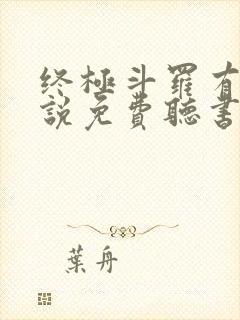 终極斗羅有
說免費聽書
葉舟